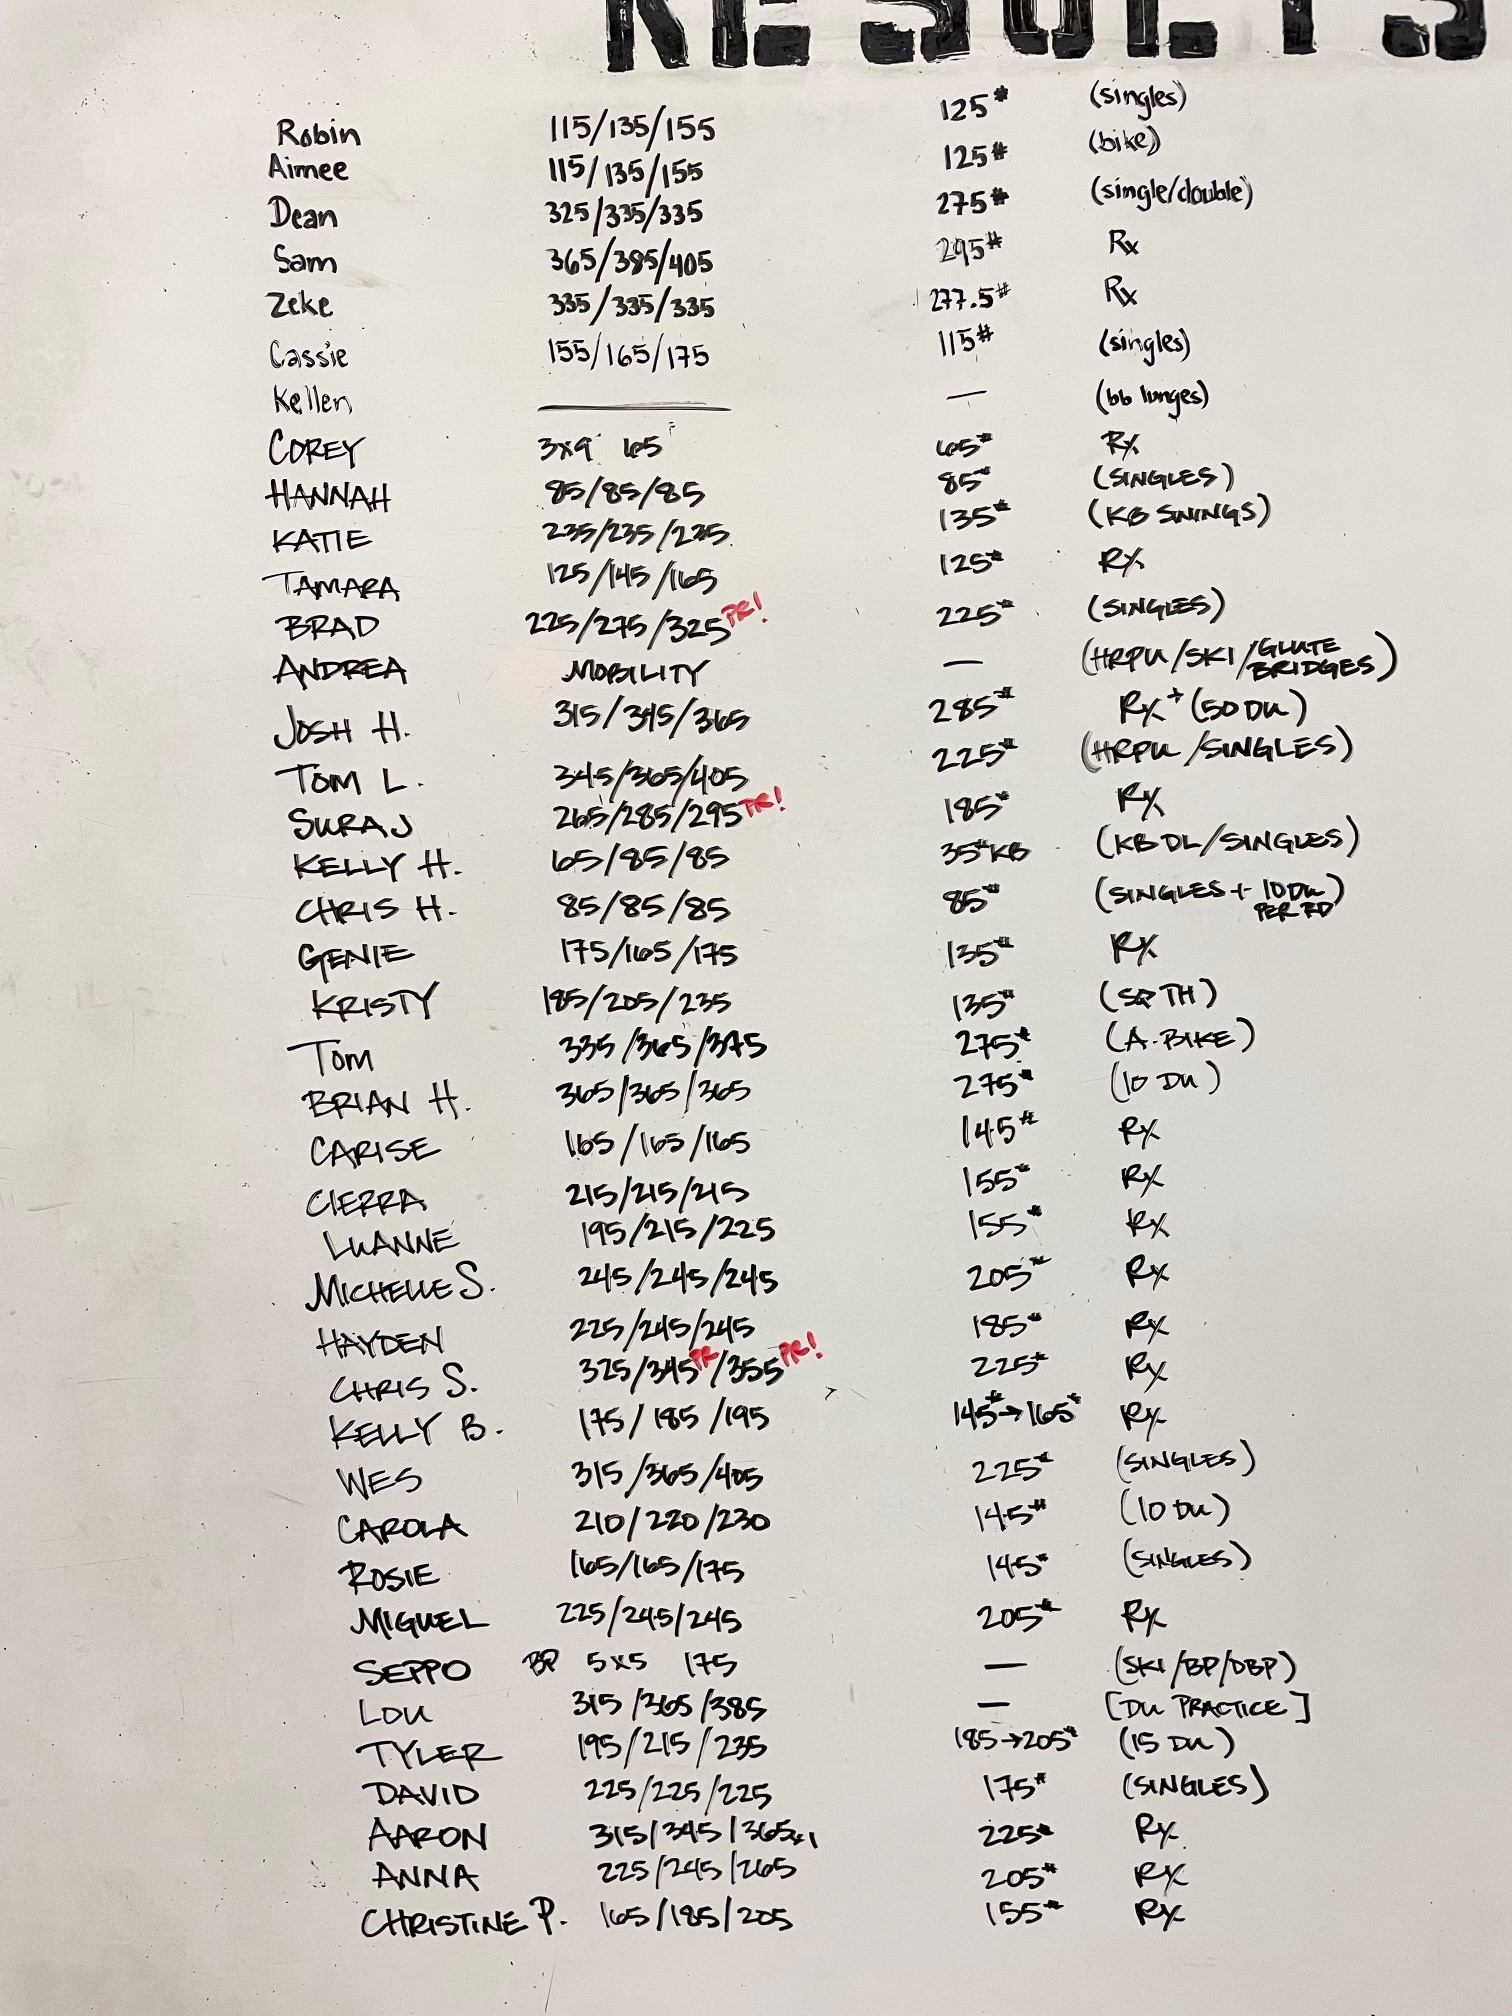 RESULTS
Robin 115/135/155 125# (singles)
Aimee 115/135/155 125# (bike)
Dean 325/335/335 275# (single/double)
Sam 365/385/405 295# Rx
Zeke 335/335/335 277.5# Rx
Cassie 155/165/175 115# (singles)
Kellen — — (bb lunges)
COREY 3x9 65 65# Rx
HANNAH 85/85/85 85# (SINGLES)
KATIE 235/235/235 135# (KB SWINGS)
TAMARA 125/145/165 125# Rx
BRAD 225/275/325 PR! 225# (SINGLES)
ANDREA MOBILITY — (HRPU/SKI/GLUTE BRIDGES)
JOSH H. 315/345/365 285# Rx+ (50 DU)
TOM L. 345/365/405 225# (HRPU/SINGLES)
SURAJ 265/285/295 PR! 185# Rx
KELLY H. 65/85/85 35#KB (KB DL/SINGLES)
CHRIS H. 85/85/85 85# (SINGLES + 10 DU PER RD)
GENIE 175/165/175 135# Rx
KRISTY 185/205/235 135# (SQ TH)
Tom 335/365/375 275# (A.BIKE)
BRIAN H. 365/365/365 275# (10 DU)
CARISE 165/165/165 145# Rx
CIERRA 215/215/215 155# Rx
LUANNE 195/215/225 155# Rx
MICHELLE S. 245/245/245 205# Rx
HAYDEN 225/245/245 185# Rx
CHRIS S. 325/345 PR/355 PR! 225# Rx
KELLY B. 175/185/195 145#→165# Rx
WES 315/365/405 225# (SINGLES)
CAROLA 210/220/230 145# (10 DU)
ROSIE 165/165/175 145# (SINGLES)
MIGUEL 225/245/245 205# Rx
SEPPO BP 5x5 175 — (SKI/BP/DBP)
LOU 315/365/385 — [DU PRACTICE]
TYLER 195/215/235 185→205# (15 DU)
DAVID 225/225/225 175# (SINGLES)
AARON 315/345/365x1 225# Rx
ANNA 225/245/265 205# Rx
CHRISTINE P. 165/185/205 155# Rx